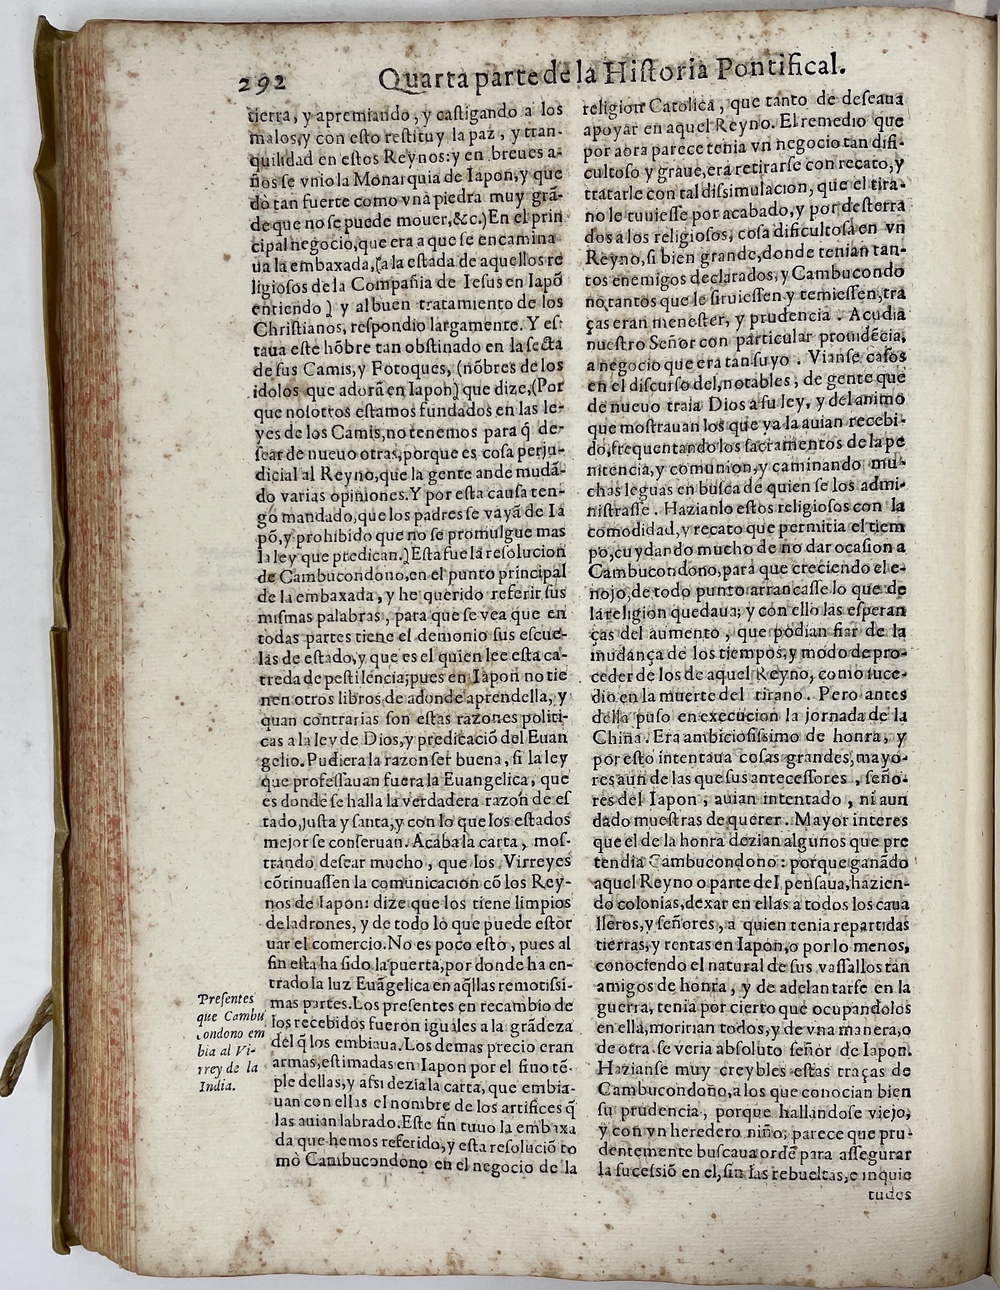 292
Quarta parte de la Hiſtoria Pontifical.
tierra, y apremiando, y caſtigando a los
malos, y con eſto reſtituy la paz, y tran-
quilidad en eſtos Reynos: y en breues a-
ños ſe vnio la Monarquia de Iapon, y que
do tan fuerte como vna piedra muy grã-
de que no ſe puede mouer, &c.) En el prin
cipal negocio, que era a que ſe encamina
ua la embaxada, (a la eſtada de aquellos re
ligioſos de la Compañia de Ieſus en Iapõ
entiendo) y al buen tratamiento de los
Chriſtianos, reſpondio largamente. Y eſ-
taua eſte hõbre tan obſtinado en la ſecta
de ſus Camis, y Fotoques, (nõbres de los
idolos que adorã en Iapon) que dize, (Por
que noſotros eſtamos fundados en las le-
yes de los Camis, no tenemos para q̃ de-
ſear de nueuo otras, porque es coſa perju-
dicial al Reyno, que la gente ande mudã-
do varias opiniones. Y por eſta cauſa ten-
go mandado, que los padres ſe vayã de Ia
põ, y prohibido que no ſe promulgue mas
la ley que predican.) Eſta fue la reſolucion
de Cambucondono, en el punto principal
de la embaxada, y he querido referir ſus
miſmas palabras, para que ſe vea que en
todas partes tiene el demonio ſus eſcue-
las de eſtado, y que es el quien lee eſta ca-
treda de peſtilencia; pues en Iapon no tie
nen otros libros de adonde aprendella, y
quan contrarias ſon eſtas razones politi-
cas a la ley de Dios, y predicaciõ del Euan
gelio. Pudiera la razon ſer buena, ſi la ley
que profeſſauan fuera la Euangelica, que
es donde ſe halla la verdadera razon de eſ
tado, juſta y ſanta, y con lo que los eſtados
mejor ſe conſeruan. Acaba la carta, moſ-
trando deſear mucho, que los Virreyes
cõtinuaſſen la comunicacion cõ los Rey-
nos de Iapon: dize que los tiene limpios
de ladrones, y de todo lo que puede eſtor
uar el comercio. No es poco eſto, pues al
fin eſta ha ſido la puerta, por donde ha en-
trado la luz Euãgelica en aq̃llas remotiſſi-
mas partes. Los preſentes en recambio de
los recebidos fueron iguales a la grãdeza
del q̃ los embiaua. Los demas precio eran
armas, eſtimadas en Iapon por el fino tẽ-
ple dellas, y aſsi dezia la carta, que embia-
uan con ellas el nombre de los artifices q̃
las auian labrado. Eſte fin tuuo la embaxa
da que hemos referido, y eſta reſoluciõ to
mò Cambucondono en el negocio de la
Preſentes
que Cambu
condono em
bia al Vi-
rrey de la
India.
religion Catolica, que tanto de deſeaua
apoyar en aquel Reyno. El remedio que
por aora parece tenia vn negocio tan difi-
cultoſo y graue, era retirarſe con recato, y
tratarle con tal diſsimulacion, que el tira-
no le tuuieſſe por acabado, y por deſterra
dos a los religioſos; coſa dificultoſa en vn
Reyno, ſi bien grande, donde tenian tan-
tos enemigos declarados, y Cambucondo
no, tantos que le ſiruieſſen y temieſſen, tra
ças eran meneſter, y prudencia. Acudia
nueſtro Señor con particular prouidẽcia,
a negocio que era tan ſuyo. Vianſe caſos
en el diſcurſo del, notables, de gente que
de nueuo traia Dios a ſu ley, y del animo
que moſtrauan los que ya la auian recebi-
do, frequentando los ſacramentos de la pe
nitencia, y comunion, y caminando mu-
chas leguas en buſca de quien ſe los admi-
niſtraſſe. Hazianlo eſtos religioſos con la
comodidad, y recato que permitia el tiem
po, cuydando mucho de no dar ocaſion a
Cambucondono, para que creciendo el e-
nojo, de todo punto arrancaſſe lo que de
la religion quedaua; y con ello las eſperan
ças del aumento, que podian fiar de la
mudança de los tiempos, y modo de pro-
ceder de los de aquel Reyno, como ſuce-
dio en la muerte del tirano. Pero antes
della puſo en execucion la jornada de la
China. Era ambicioſiſsimo de honra, y
por eſto intentaua coſas grandes, mayo-
res aun de las que ſus anteceſſores, ſeño-
res del Iapon, auian intentado, ni aun
dado mueſtras de querer. Mayor interes
que el de la honra dezian algunos que pre
tendia Cambucondono: porque ganãdo
aquel Reyno o parte del penſaua, hazien-
do colonias, dexar en ellas a todos los caua
lleros, y ſeñores, a quien tenia repartidas
tierras, y rentas en Iapon, o por lo menos,
conociendo el natural de ſus vaſſallos tan
amigos de honra, y de adelantarſe en la
guerra, tenia por cierto que ocupandolos
en ella, moririan todos, y de vna manera, o
de otra ſe veria abſoluto ſeñor de Iapon.
Hazianſe muy creybles eſtas traças de
Cambucondono, a los que conocian bien
ſu prudencia, porque hallandoſe viejo,
y con vn heredero niño, parece que pru-
dentemente buſcaua ordẽ para aſſegurar
la ſuceſsiõ en el, ſin las rebueltas, e inquie
tudes